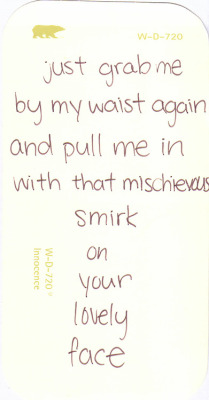 W-D-720
just grab me
by my waist again
and pull me in
with that mischievous
smirk
on
your
lovely
face
W-D-720
Innocence